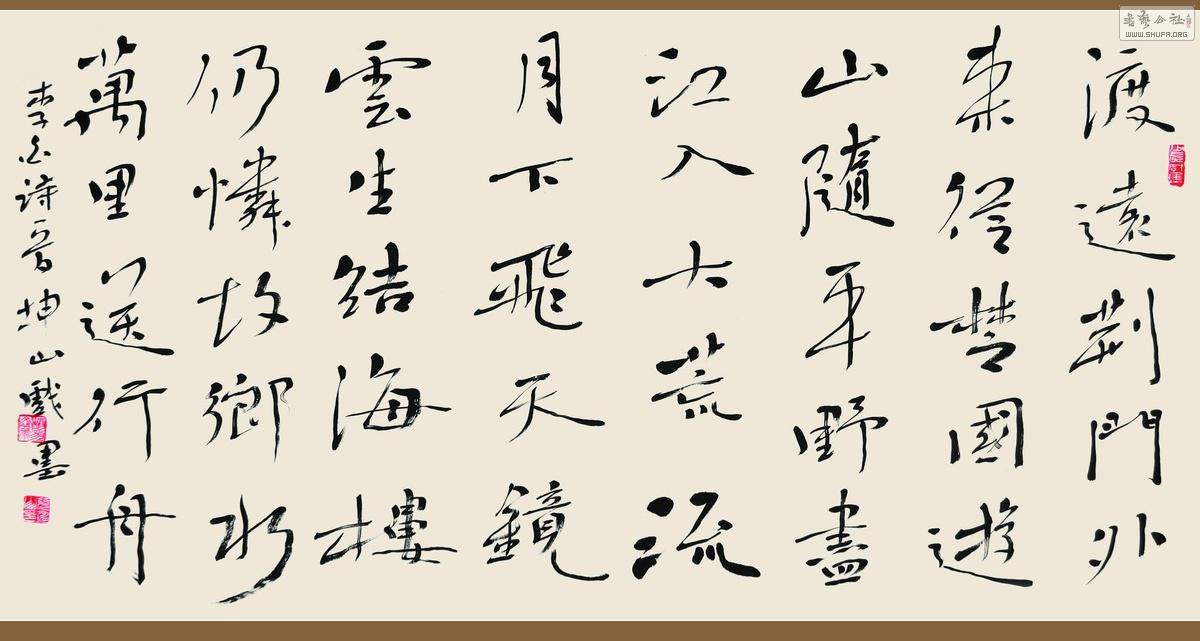 渡遠荆門外
來從楚國遊
山隨平野盡
江入大荒流
月下飛天鏡
雲生結海樓
仍憐故鄉水
萬里送行舟
李白詩一首 坤山戲墨
书艺公社
WWW.SHUFA.ORG